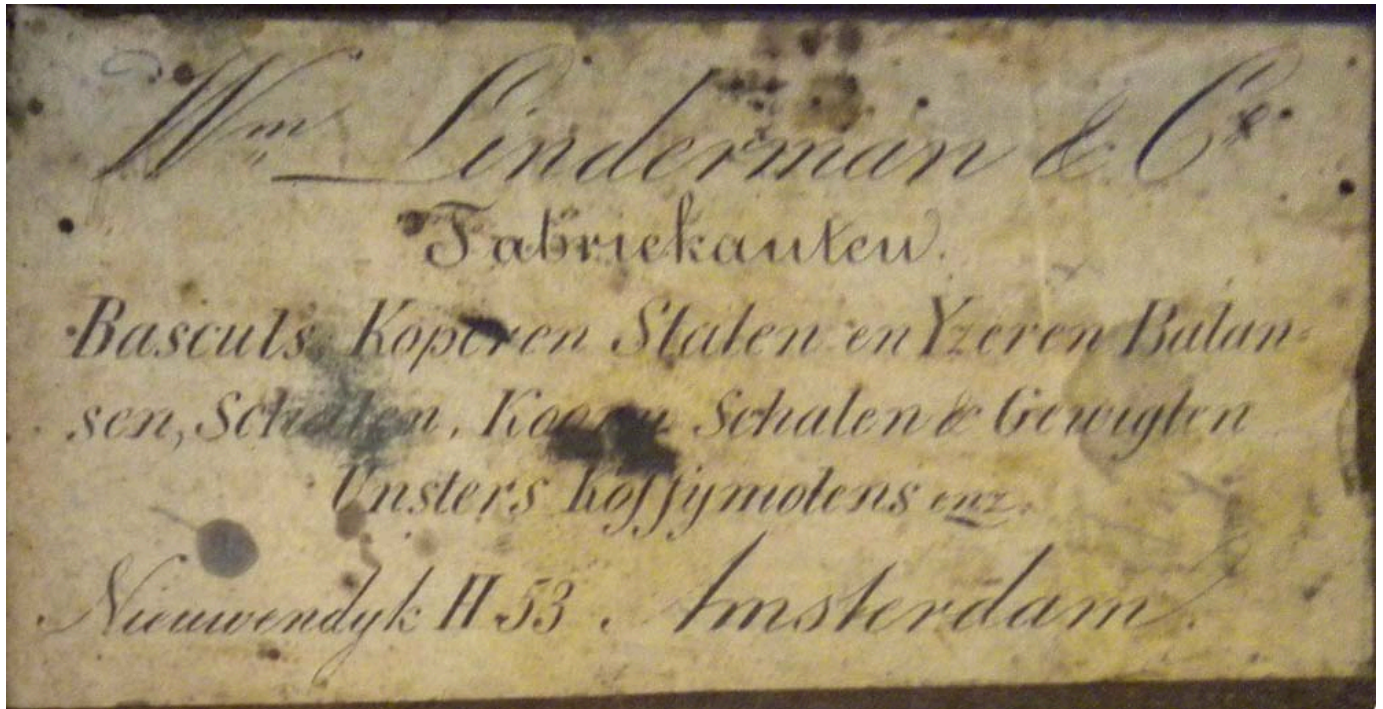 Wm Linderman & Ce.
Fabriekanten.
Bascuts, Koperen Stalen en Yzeren Balan-
sen, Schalen, Schalen & Gewigten
Unsters Koffymolens enz.
Nieuwendyk H 53. Amsterdam.